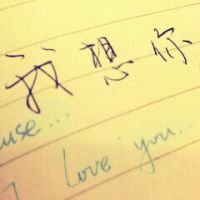 我想你
...use...
I love you...